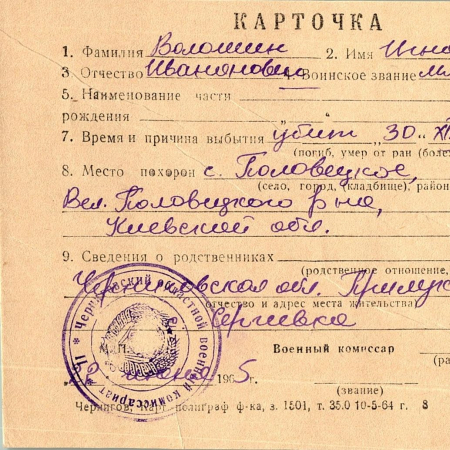 КАРТОЧКА
1. Фамилия Волошин 2. Имя Игна
3. Отчество Иванович 4. Воинское звание мл
5. Наименование части
рождения
7. Время и причина выбытия убит „30“ XI
(погиб, умер от ран (боле
8. Место похорон с. Половецкое,
(село, город, (кладбище), район
Вел. Половецкого р-на,
Киевской обл.
9. Сведения о родственниках
(родственное отношение,
Черниговская обл. Прилук
отчество и адрес места жительства)
Сергиевка
Черниговский областной военный комиссариат
М. П.
Военный комиссар
1965 г.
(ра
(звание)
Чернигов, Карт. полиграф ф-ка, з. 1501, т. 35.0 10-5-64 г. 8